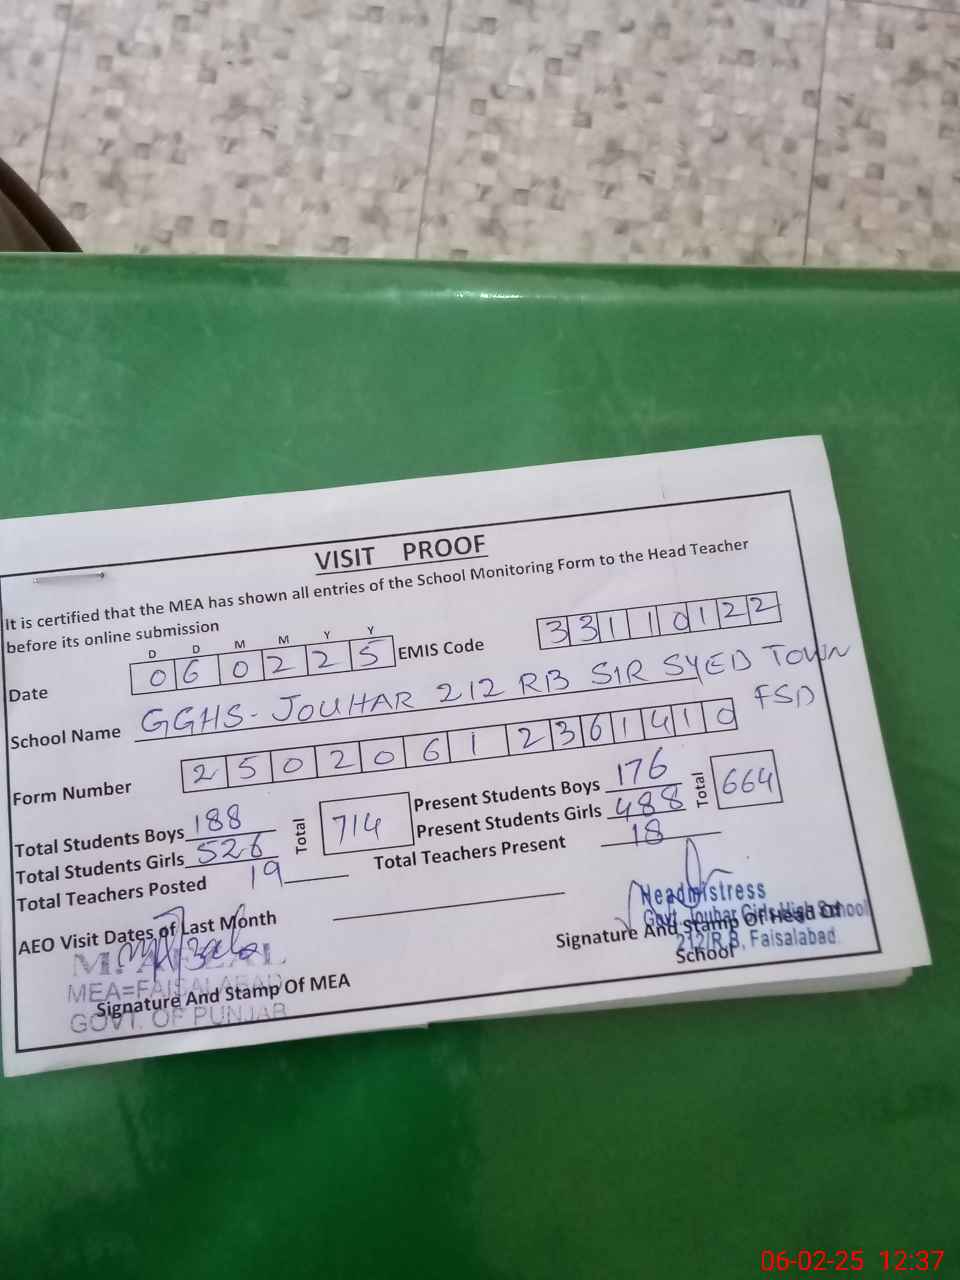 VISIT PROOF
It is certified that the MEA has shown all entries of the School Monitoring Form to the Head Teacher
before its online submission
D D M M Y Y
Date 0 6 0 2 2 5 EMIS Code 3 3 1 1 0 1 2 2
School Name GGHS - JOUHAR 212 RB SIR SYED TOWN
FSD
Form Number 2 5 0 2 0 6 1 2 3 6 1 4 1 0
Total Students Boys 188 Total 714 Present Students Boys 176 Total 664
Total Students Girls 526 Present Students Girls 488
Total Teachers Posted 19 Total Teachers Present 18
AEO Visit Dates of Last Month
Headmistress
Govt. Jouhar Girls High School
212/R.B, Faisalabad.
Signature And Stamp Of Head Of
School
MEA=FAISALABAD
Signature And Stamp Of MEA
GOVT. OF PUNJAB
06-02-25 12:37